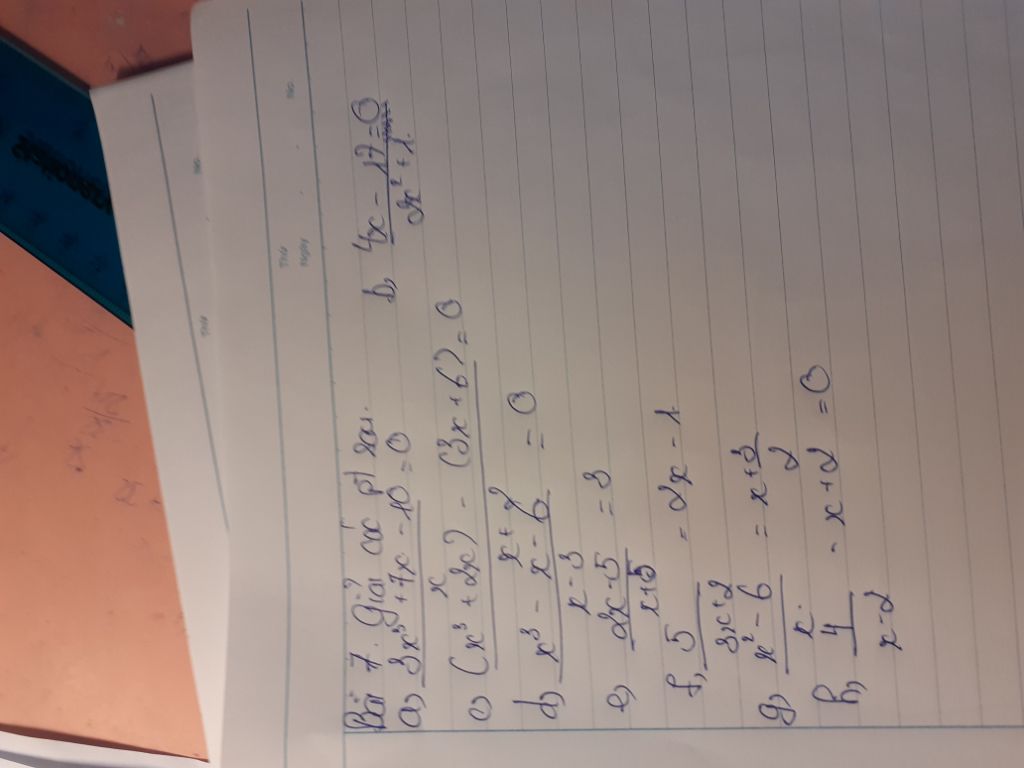 Bài 7. Giải các pt sau.
a, (3x³ + 7x - 10)/x = 0 b, (4x - 17)/(2x² + 1) = 0
c) ((x³ + 2x) - (3x + 6))/(x + 2) = 0
d, (x³ - x - 6)/(x - 3) = 0
e, (2x - 5)/(x + 5) = 3
f, 5/(3x + 2) = 2x - 1
g, (x² - 6)/x = x + 3/2
h, 4/(x - 2) - x + 2 = 0
Thứ
Ngày
No.